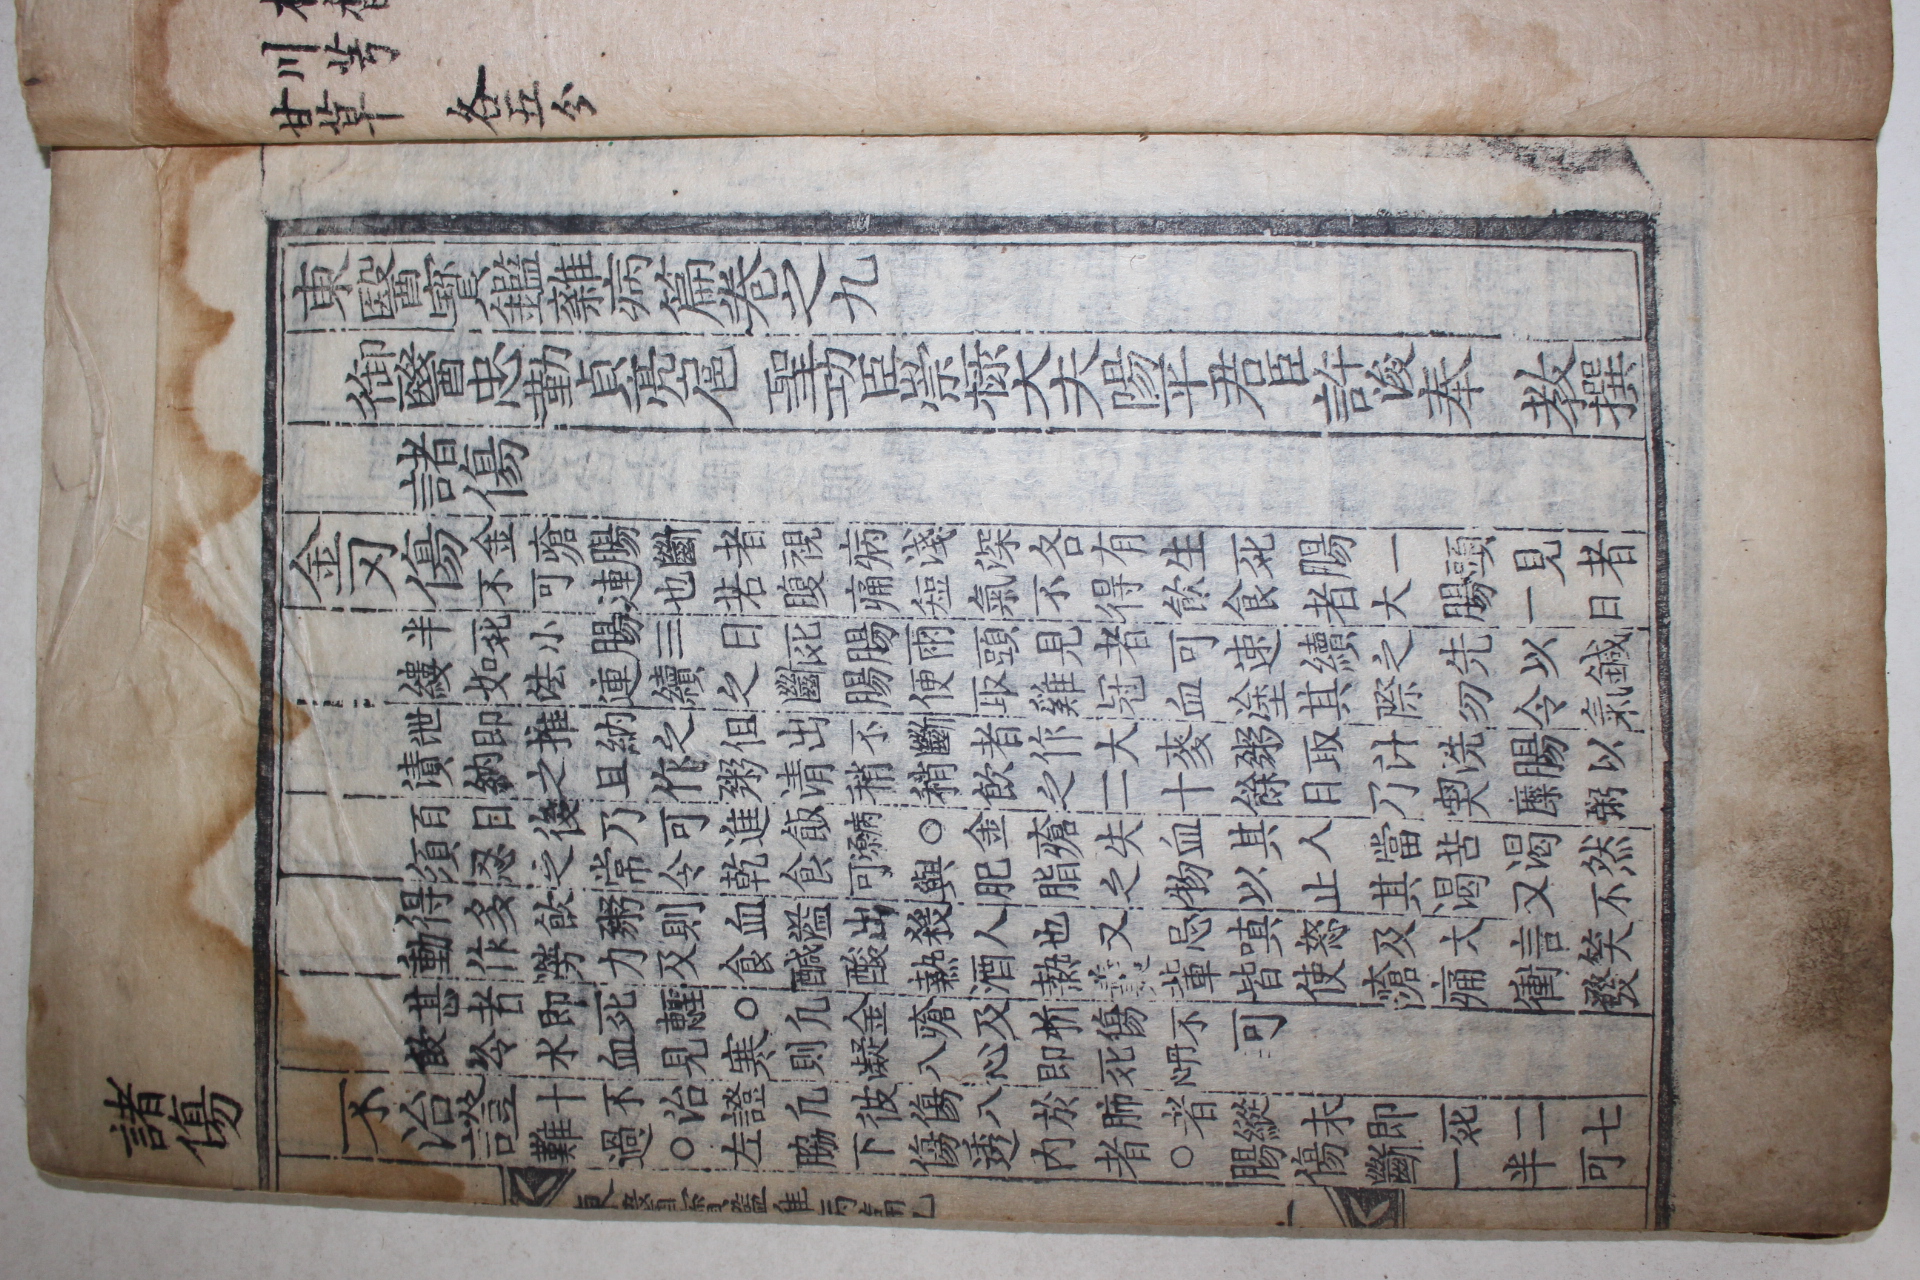 川芎
甘草 各五分
諸傷
東醫寶鑑雜病篇卷之九
御醫忠勤貞亮扈 聖功臣崇祿大夫陽平君臣許浚奉 教撰
諸傷
金刃傷 金瘡腸斷者視病淺深各有生死腸一頭見者
不可連也若腹痛短氣不得飮食者大腸一日
半死小腸三日死腸兩頭見者可速續之先以鍼
縷如法連續之斷腸便取雞冠血塗其際勿令氣
泄即推納之但出不斷者作大麥粥取汁洗腸以
漬納之且作粥清稍稍飮之二十餘日乃喫糜粥
百日後乃可進飯病源○金瘡失血其人當苦渴然
須忍之常令乾食可與肥脂之物以止其渴又不
得多飮粥則血溢出殺人也又忌嗔怒及大言笑
動作勞力及食醎酸熱酒熱羹輩皆使瘡痛衝發
甚者即死○凡金瘡及折傷不可
飮冷水血見寒則凝入心即死丹心
不治證 十不治證凡被傷入於肺者縱未即死二七
難過○左脇下傷透內者○腸傷斷一半可
東醫寶鑑雜病篇九 一